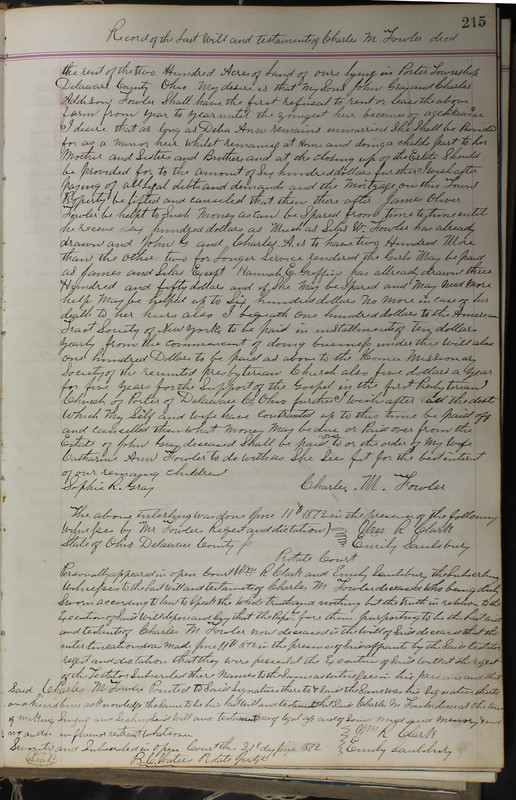 215
Record of the Last Will and testament of Charles M Fowler decd
the rent of the two Hundred Acres of land of ours lying in Porter Township
Delaware County Ohio My desire is that My Sons John Gray and Charles
Addison Fowler Shall have the first refusal to rent or lease the above
farm from year to year until the youngest heir becomes of age
I desire that as long as Delia Ann remains unmarried She Shall be
for as a minor heir whilst remaining at Home and doing a childs part to her
Mother and Sisters and Brothers and at the closing up of the Estate Should
be provided for to the amount of Six hundred dollars further I wish after
paying of all legal debt and demands and the Mortgage on this Town
Property be lifted and canceled that then there after James Oliver
Fowler be helpt to Such Money as can be Spared from time to time until
he receive Six hundred dollars as Much as Silas W. Fowler has already
drawn and John G and Charles A. is to have two Hundred More
than the Other two for Longer Service rendered the Girls May be paid
as James and Silas Except Hannah E. Griffin has allready drawn three
Hundred and fifty dollars and if She May be Spared and May need More
help May be helped up to Six hundred dollars No More in case of her
death to her heirs also I begeath One hundred dollars to the American
Tract Society of New York to be paid in installments of ten dollars
Yearly from the commencement of doing business under this will also
one hundred Dollars to be paid as above to the Home Missionary
Society of the reunited presbyterian Church also five dollars a Year
for five Years for the Support of the Gospel in the first Presbyterian
Church of Porter of Delaware Co Ohio further I wish after all the debt
Which My Self and Wife have contracted up to this time be paid off
and cancelled then what Money May be due or Paid over from the
Estate of John Gray deceased Shall be paid to or the order of My Wife
Catharine Ann Fowler to do with as She Sees fit for the best interest
of our remaing children
Sophie R. Gray Charles M. Fowler
The above interling was done June 11th 1872 in the presence of the following
Witnesses by Mr Fowlers Reqest and dictation) Wm R Clark
State of Ohio Delaware County ss Emily Saulsbury
Probate Court
Personally appeared in open Court Wm R Clark and Emily Saulsbury the Subscribing
Witnesses to the Last Will and testament of Charles M Fowler deceased Who being duly
Sworn according to law to Speak the Whole truth and nothing but the truth in relation to the
Execution of Said Will depose and Say that the Paper before them purporting to be the last will
and testament of Charles M Fowler now deceased is the Will of Said deceased that the
interlineation was Made June 11th 1872 in the presence of Said affiants by the Said testators
reqest and dictation that they were present at the Execution of Said Will at the reqest
of the Testator Subscribed their Names to the Same as Witnesses in his presence and that
Said Charles M Fowler Pointed to Said Signature thereto & Said the Same was his Signature thereto
and heard him acknowledge the Same to be his last Will and testament that Said Charles M Fowler deceased at the time
of making Signing and Sealing Said Will and testament was of legal age and of Sound Mind and Memory & under
no undue influence or restraint Whatsoever
Wm R Clark
Sworn to and Subscribed in open Court this day June 1872 Emily Saulsbury
Seal Probate Judge